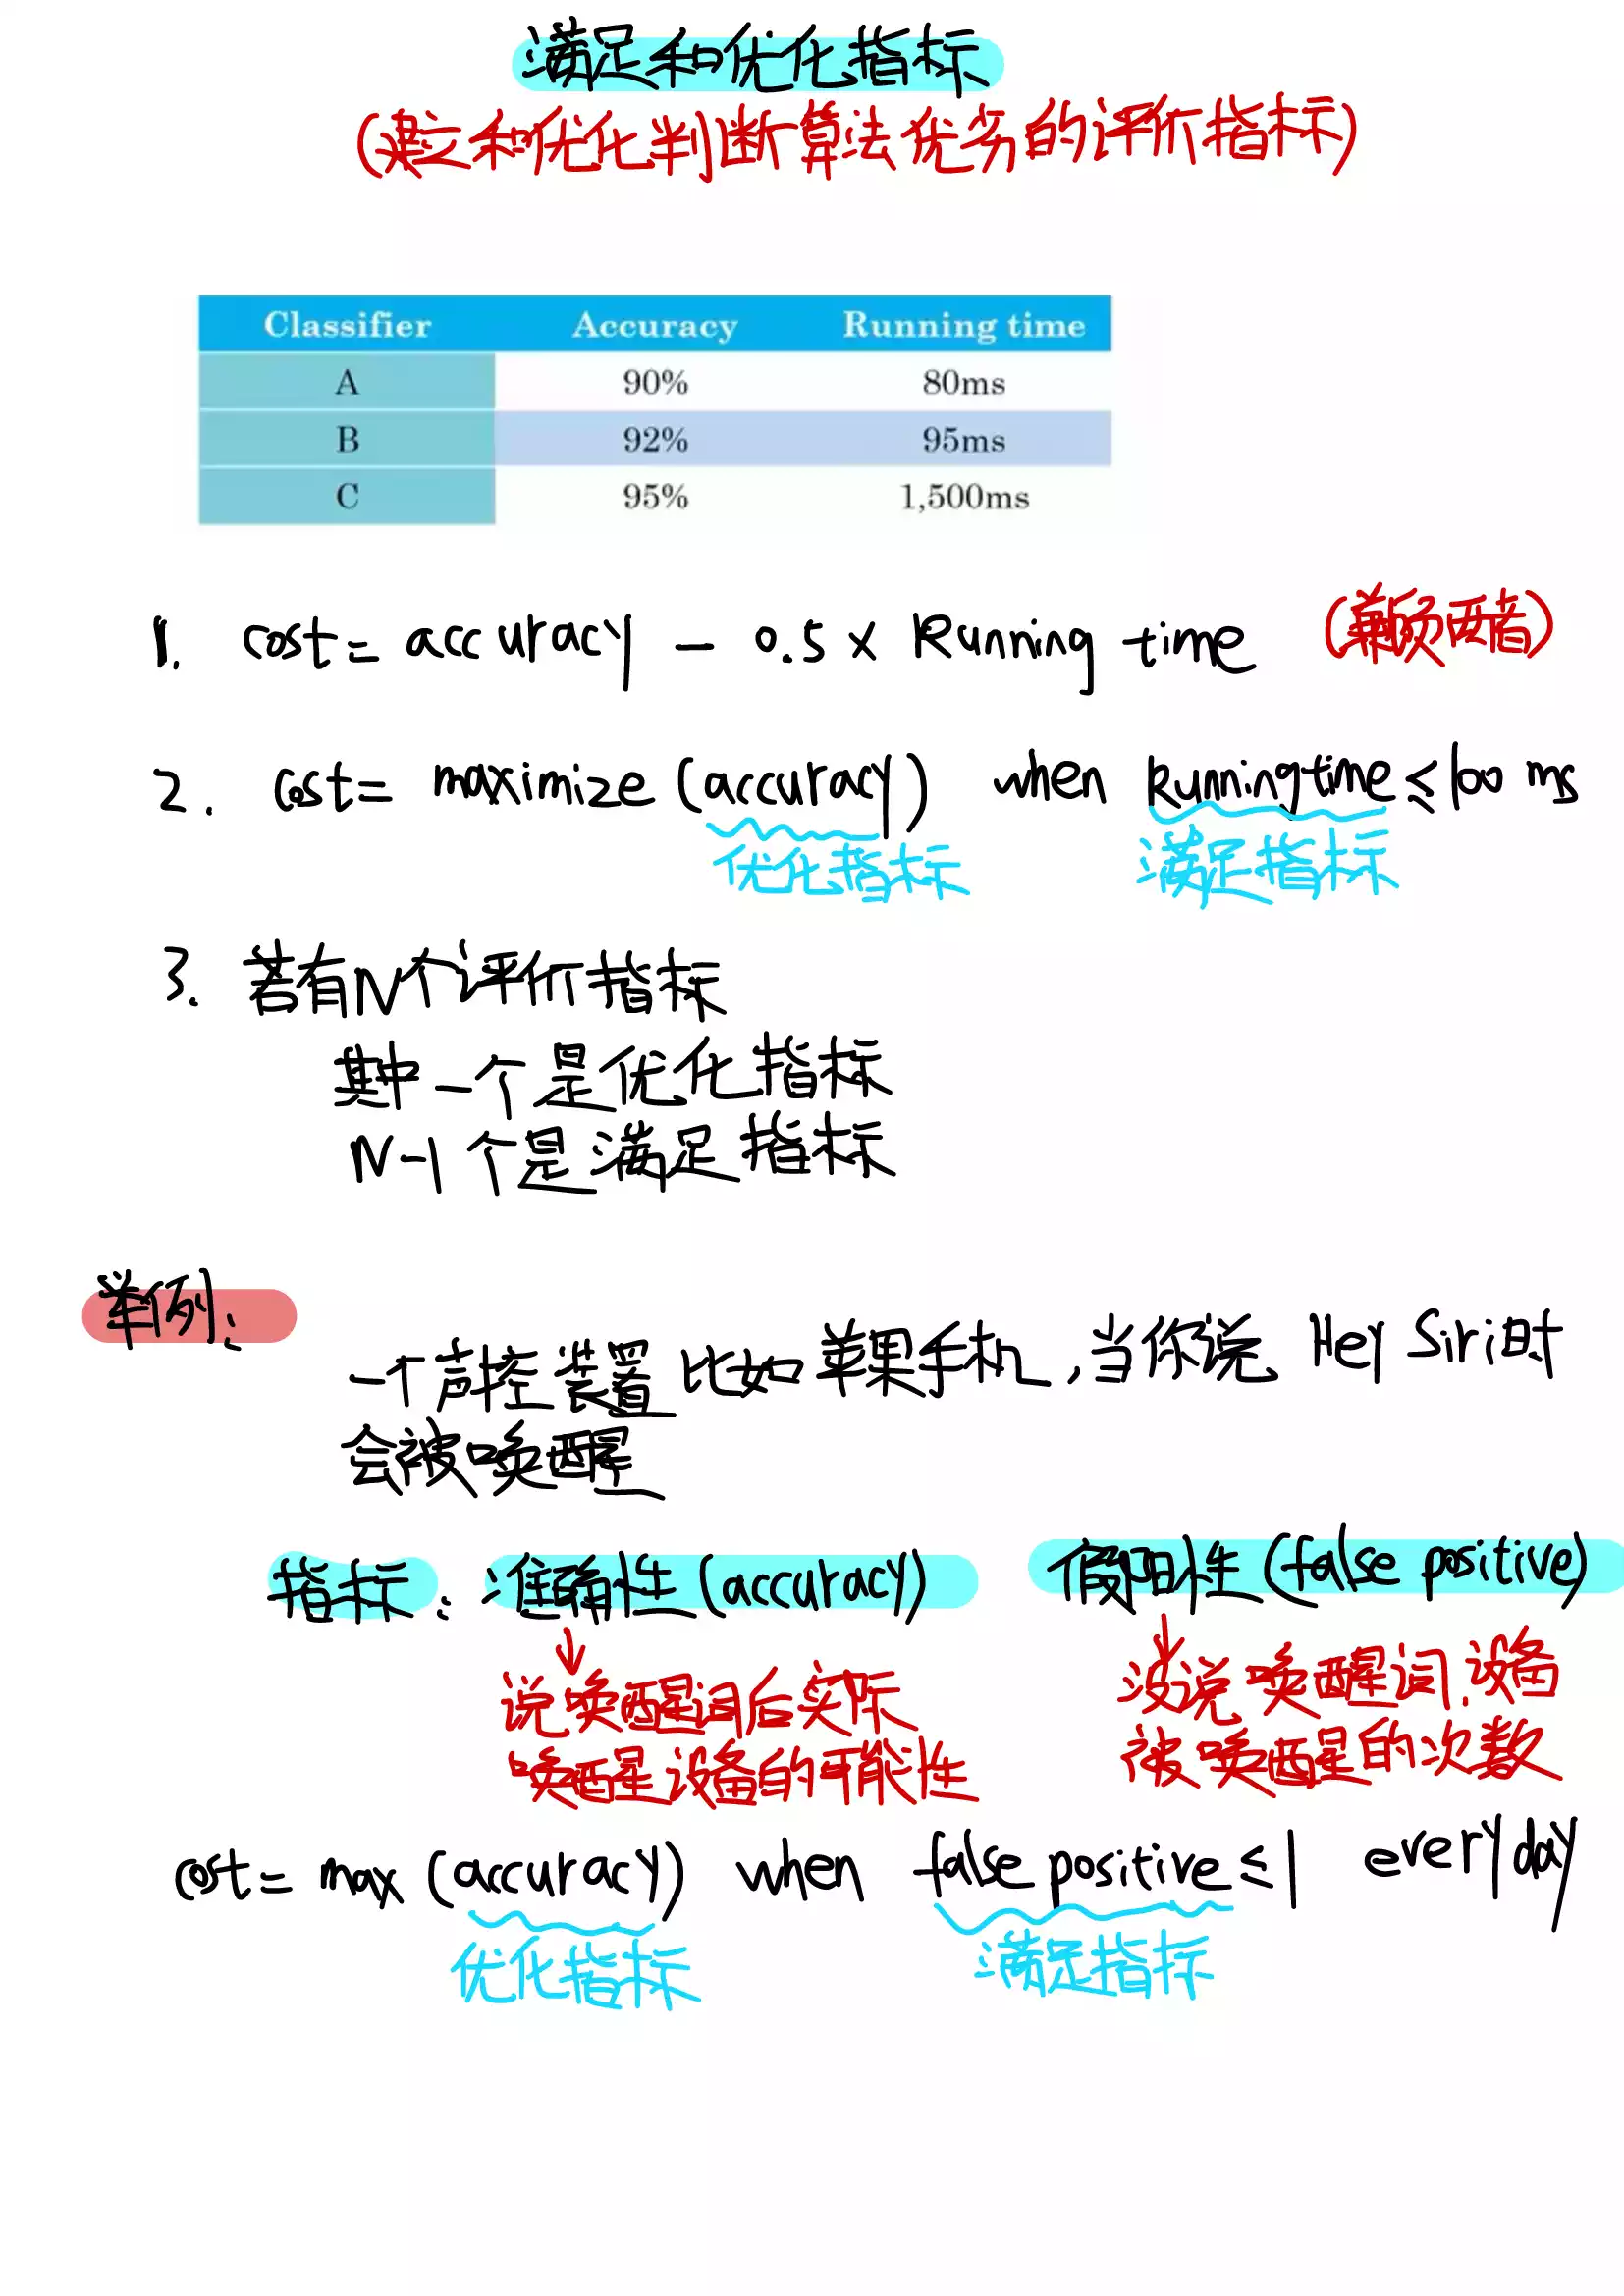 满足和优化指标
(建立和优化判断算法优劣的评价指标)
Classifier Accuracy Running time
A 90% 80ms
B 92% 95ms
C 95% 1,500ms
1. cost = accuracy - 0.5 × Running time (兼顾两者)
2. cost = maximize (accuracy) when Runningtime ≤ 100 ms
优化指标 满足指标
3. 若有N个评价指标
其中一个是优化指标
N-1个是满足指标
举例:
一个声控装置 比如苹果手机,当你说 Hey Siri时
会被唤醒
指标: 准确性(accuracy) 假阳性(false positive)
说唤醒词后实际 没说唤醒词,设备
唤醒设备的可能性 被唤醒的次数
cost = max (accuracy) when false positive ≤ 1 everyday
优化指标 满足指标